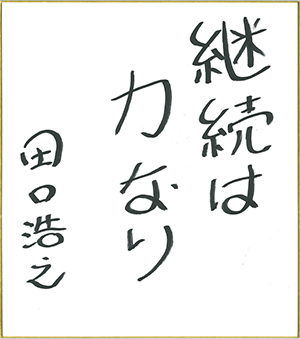 継続は
力なり
田口浩之